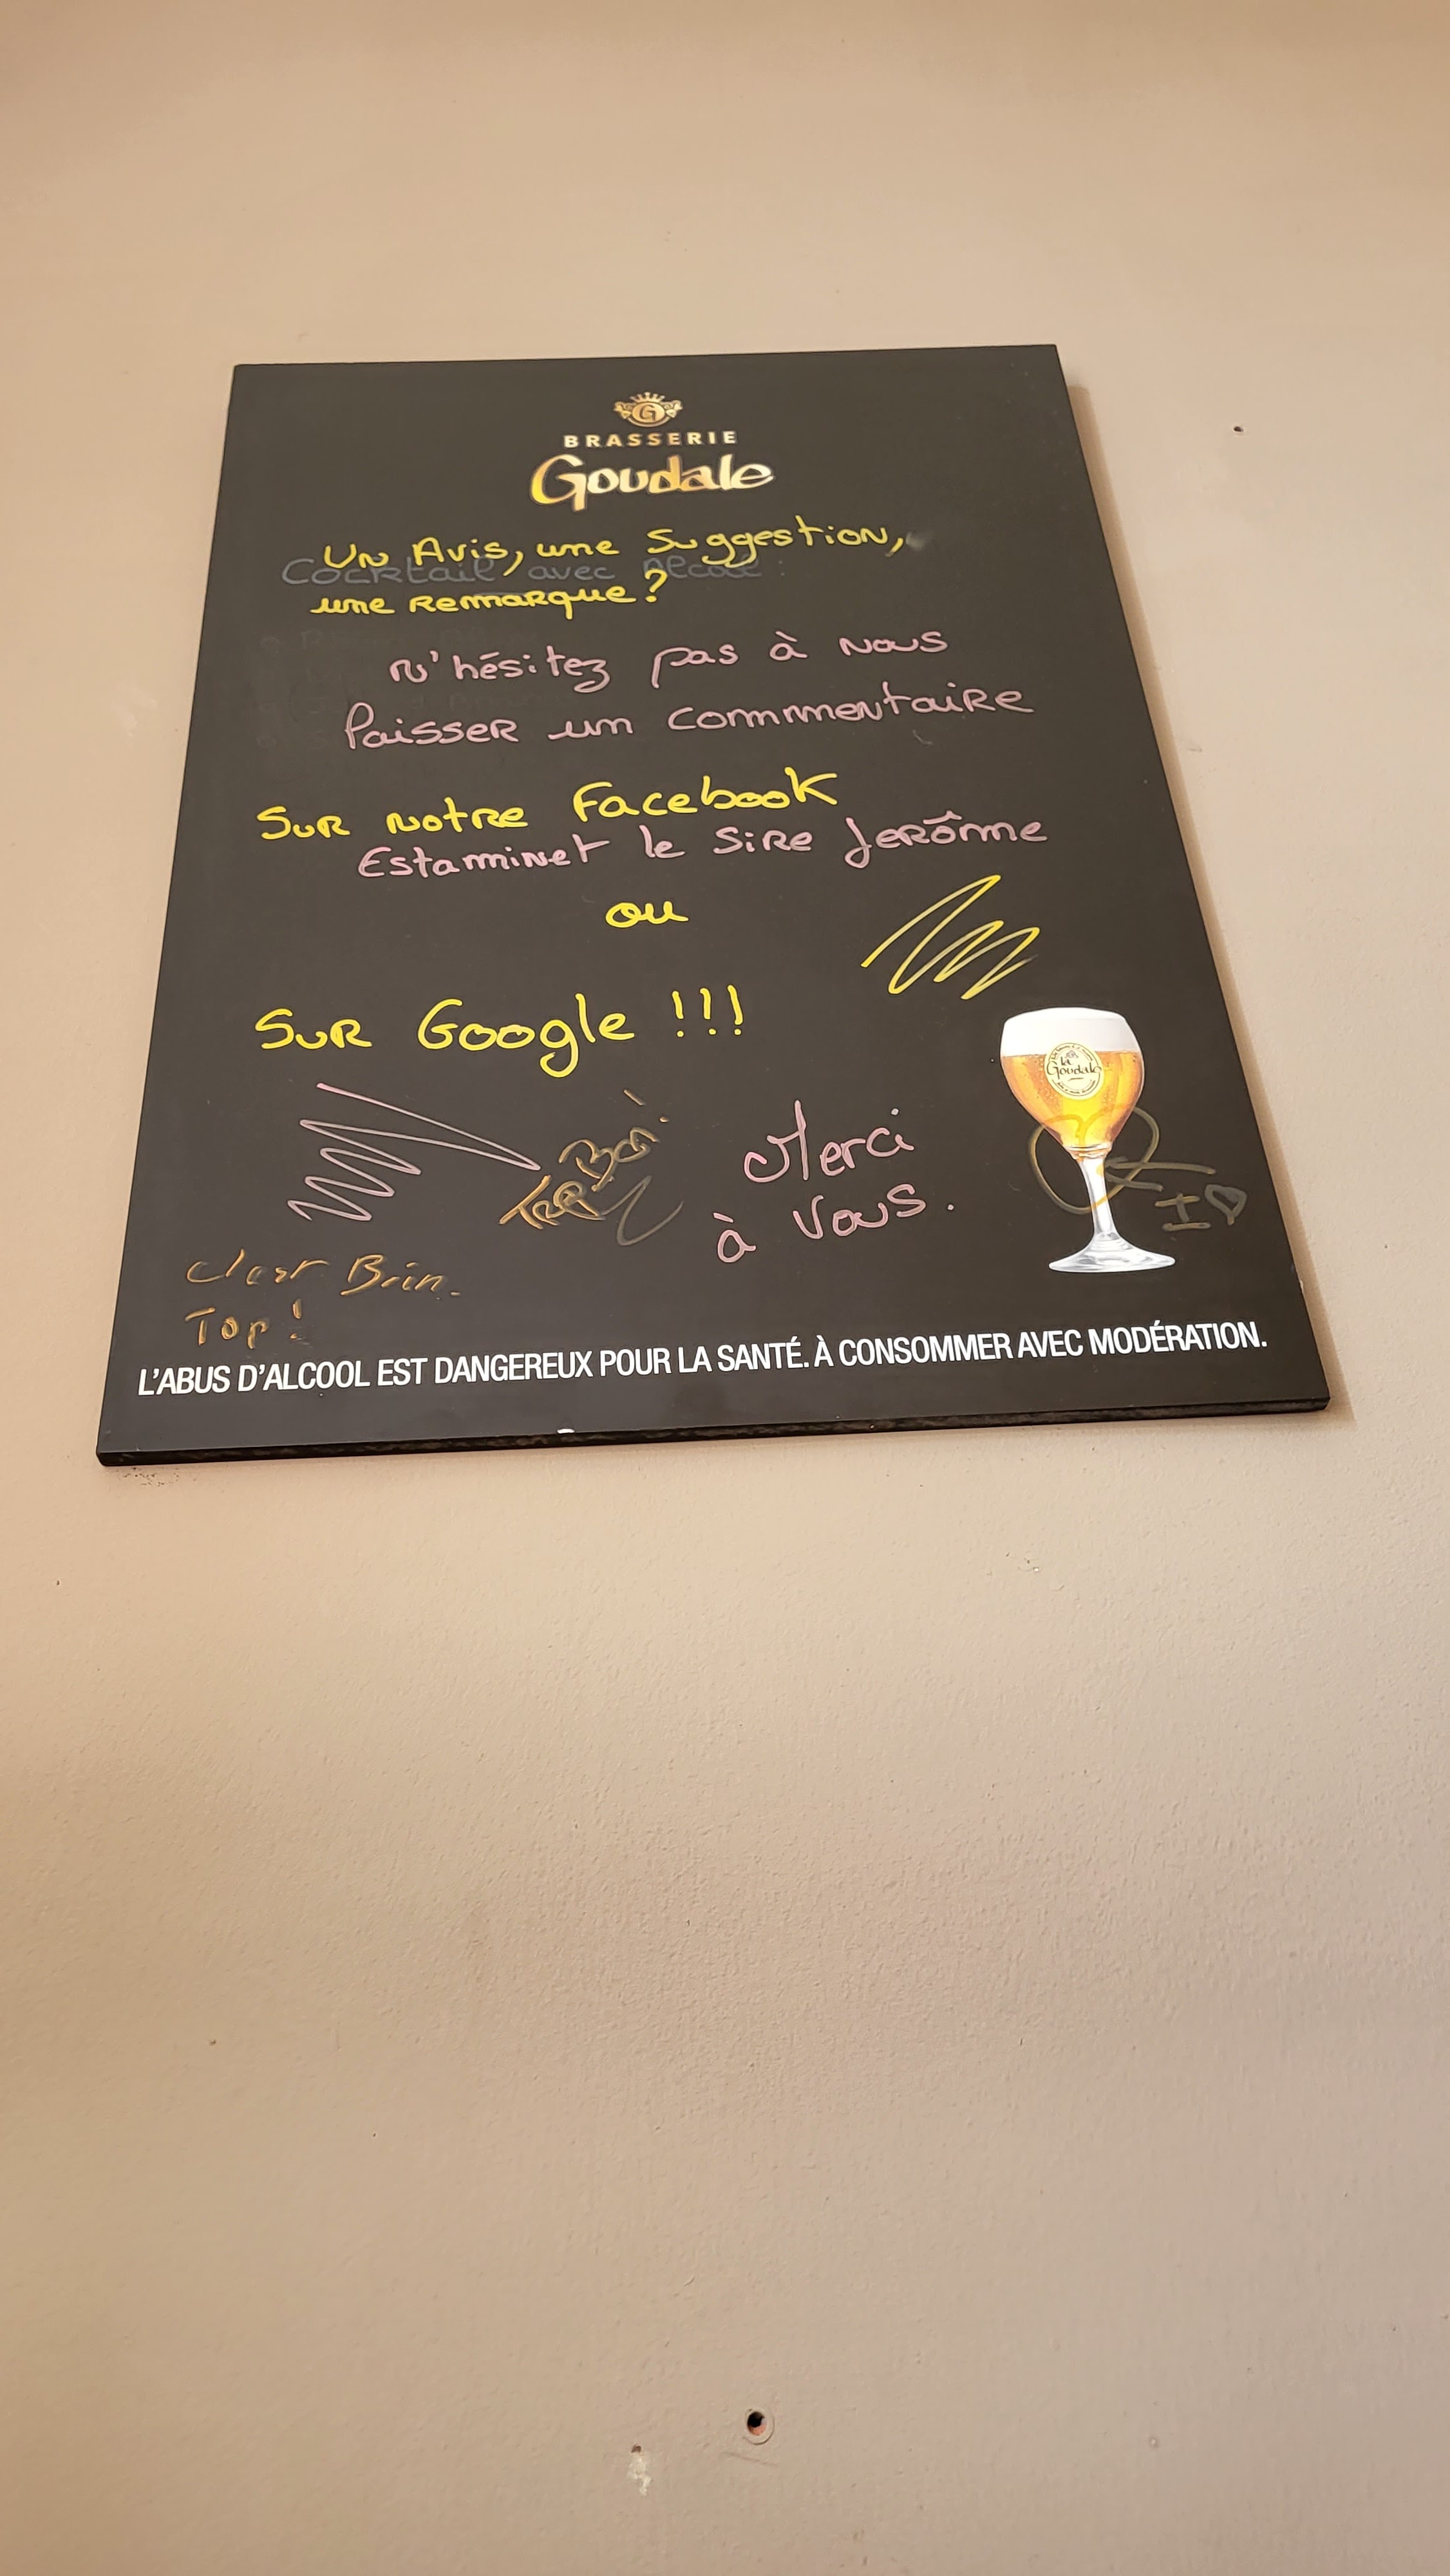 G
BRASSERIE
Goudale
Un Avis, une Suggestion,
Cocktail avec Alcool :
une Remarque ?
N'hésitez pas à nous
laisser un commentaire
Sur notre Facebook
Estaminet le Sire Jerôme
ou
Sur Google !!!
la
Goudale
Trop Bon !
Merci
à Vous.
I ♡
C'est Bien.
Top !
L'ABUS D'ALCOOL EST DANGEREUX POUR LA SANTÉ. À CONSOMMER AVEC MODÉRATION.